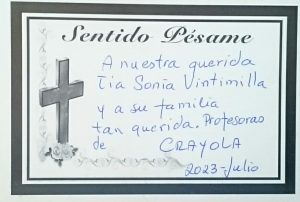 Sentido Pésame
A nuestra querida
Tia Sonia Vintimilla
y a su familia
tan querida. Profesoras
de CRAYOLA
2023-Julio